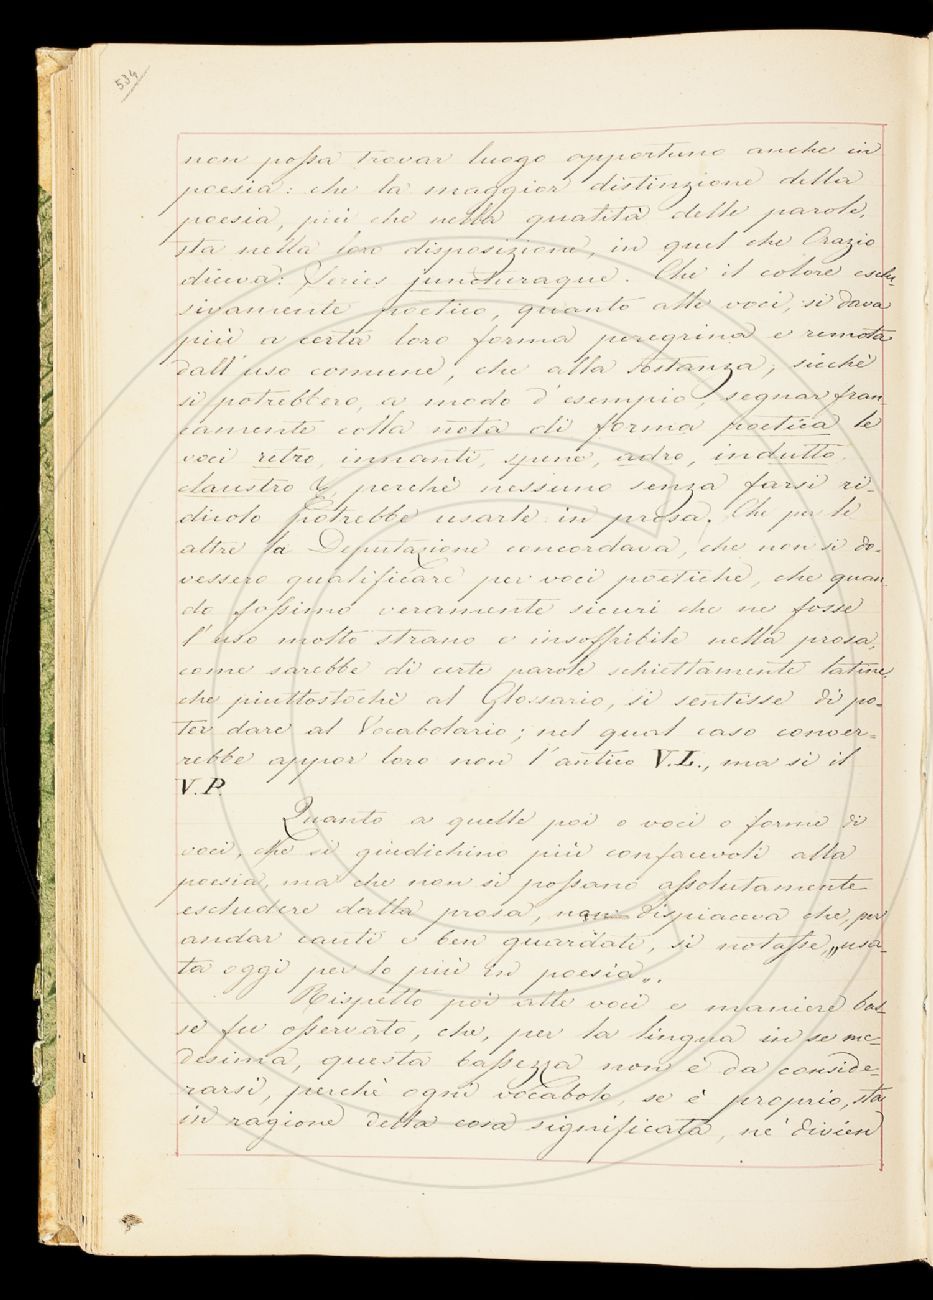 534
non possa trovar luogo opportuno anche in
poesia: che la maggior distinzione della
poesia, più che nella qualità delle parole,
sta nella loro disposizione, in quel che Orazio
diceva: Series juncturaque. Che il colore esclu-
sivamente poetico, quanto alle voci, si dava
più a certa loro forma peregrina e remota
dall'uso comune, che alla sostanza; sicchè
si potrebbero, a modo d'esempio, segnar fran-
camente colla nota di forma poetica le
voci retro, innanti, spene, adro, indutto,
claustro &, perchè nessuno senza farsi ri-
dicolo potrebbe usarle in prosa. Che per le
altre la Deputazione concordava, che non si do-
vessero qualificare per voci poetiche, che quan-
do fossimo veramente sicuri che ne fosse
l'uso molto strano e insoffribile nella prosa,
come sarebbe di certe parole schiettamente latine
che piuttostochè al Glossario, si sentisse di po-
ter dare al Vocabolario; nel qual caso conver-
rebbe appor loro non l'antico V.L., ma sì il
V.P.
Quanto a quelle poi o voci o forme di
voci, che si giudichino più confacevoli alla
poesia, ma che non si possano assolutamente
escludere dalla prosa, non dispiaceva che, per
andar cauti e ben guardati, si notasse „usa-
ta oggi per lo più in poesia„.
Rispetto poi alle voci e maniere bas-
se fu osservato, che, per la lingua in se me-
desima, questa bassezza non è da conside-
rarsi, perchè ogni vocabolo, se è proprio, sta
in ragione della cosa significata, nè divien